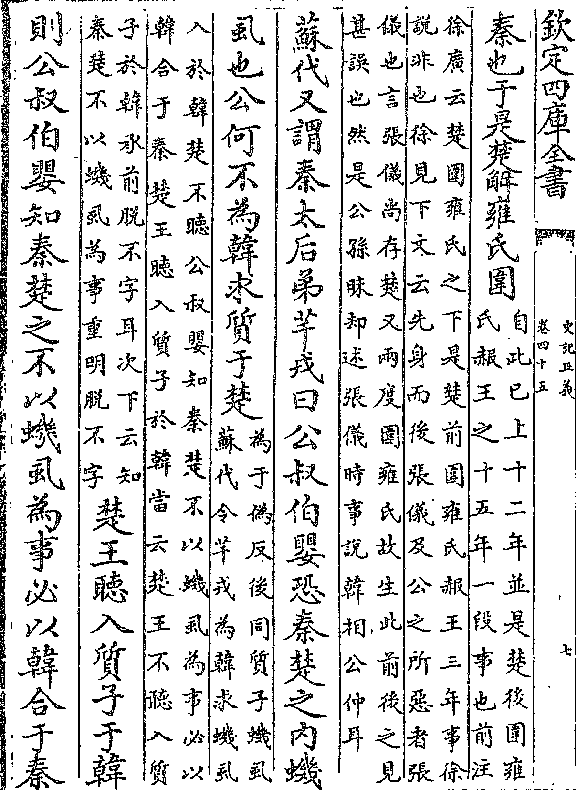 欽定四庫全書
史記正義
卷四十五
七
秦也于是楚解雍氏圍
自此已上十二年並是楚後圍雍
氏赧王之十五年一段事也前注
徐廣云楚圍雍氏之下是楚前圍雍氏赧王三年事徐
說非也徐見下文云先身而後張儀及公之所惡者張
儀也言張儀尚存楚又兩度圍雍氏故生此前後之見
甚誤也然是公孫昧却述張儀時事說韓相公仲耳
蘇代又謂秦太后弟芊戎曰公叔伯嬰恐秦楚之內蟣
虱也公何不為韓求質于楚
為于偽反後同質子蟣虱
蘇代令芊戎為韓求蟣虱
入於韓楚不聽公叔嬰知秦楚不以蟣虱為事必以
韓合于秦楚王聽入質子於韓當云楚王不聽入質
子於韓承前脫不字耳次下云知
秦楚不以蟣虱為事重明脫不字
楚王聽入質子于韓
則公叔伯嬰知秦楚之不以蟣虱為事必以韓合于秦